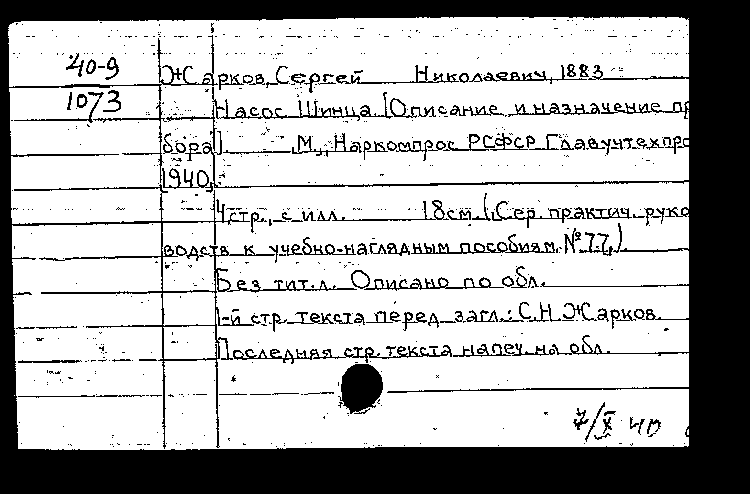 40-9
1073
Жарков, Сергей Николаевич, 1883
Насос Шинца. [Описание и назначение пр
бора]. М., Наркомпрос РСФСР Главучтехпро
1940.
4 стр., с илл. 18 см. (Сер. практич. руко
водств к учебно-наглядным пособиям. № 77.)
Без тит. л. Описано по обл.
1-й стр. текста перед загл.: С. Н. Жарков.
Последняя стр. текста напеч. на обл.
7/X 40